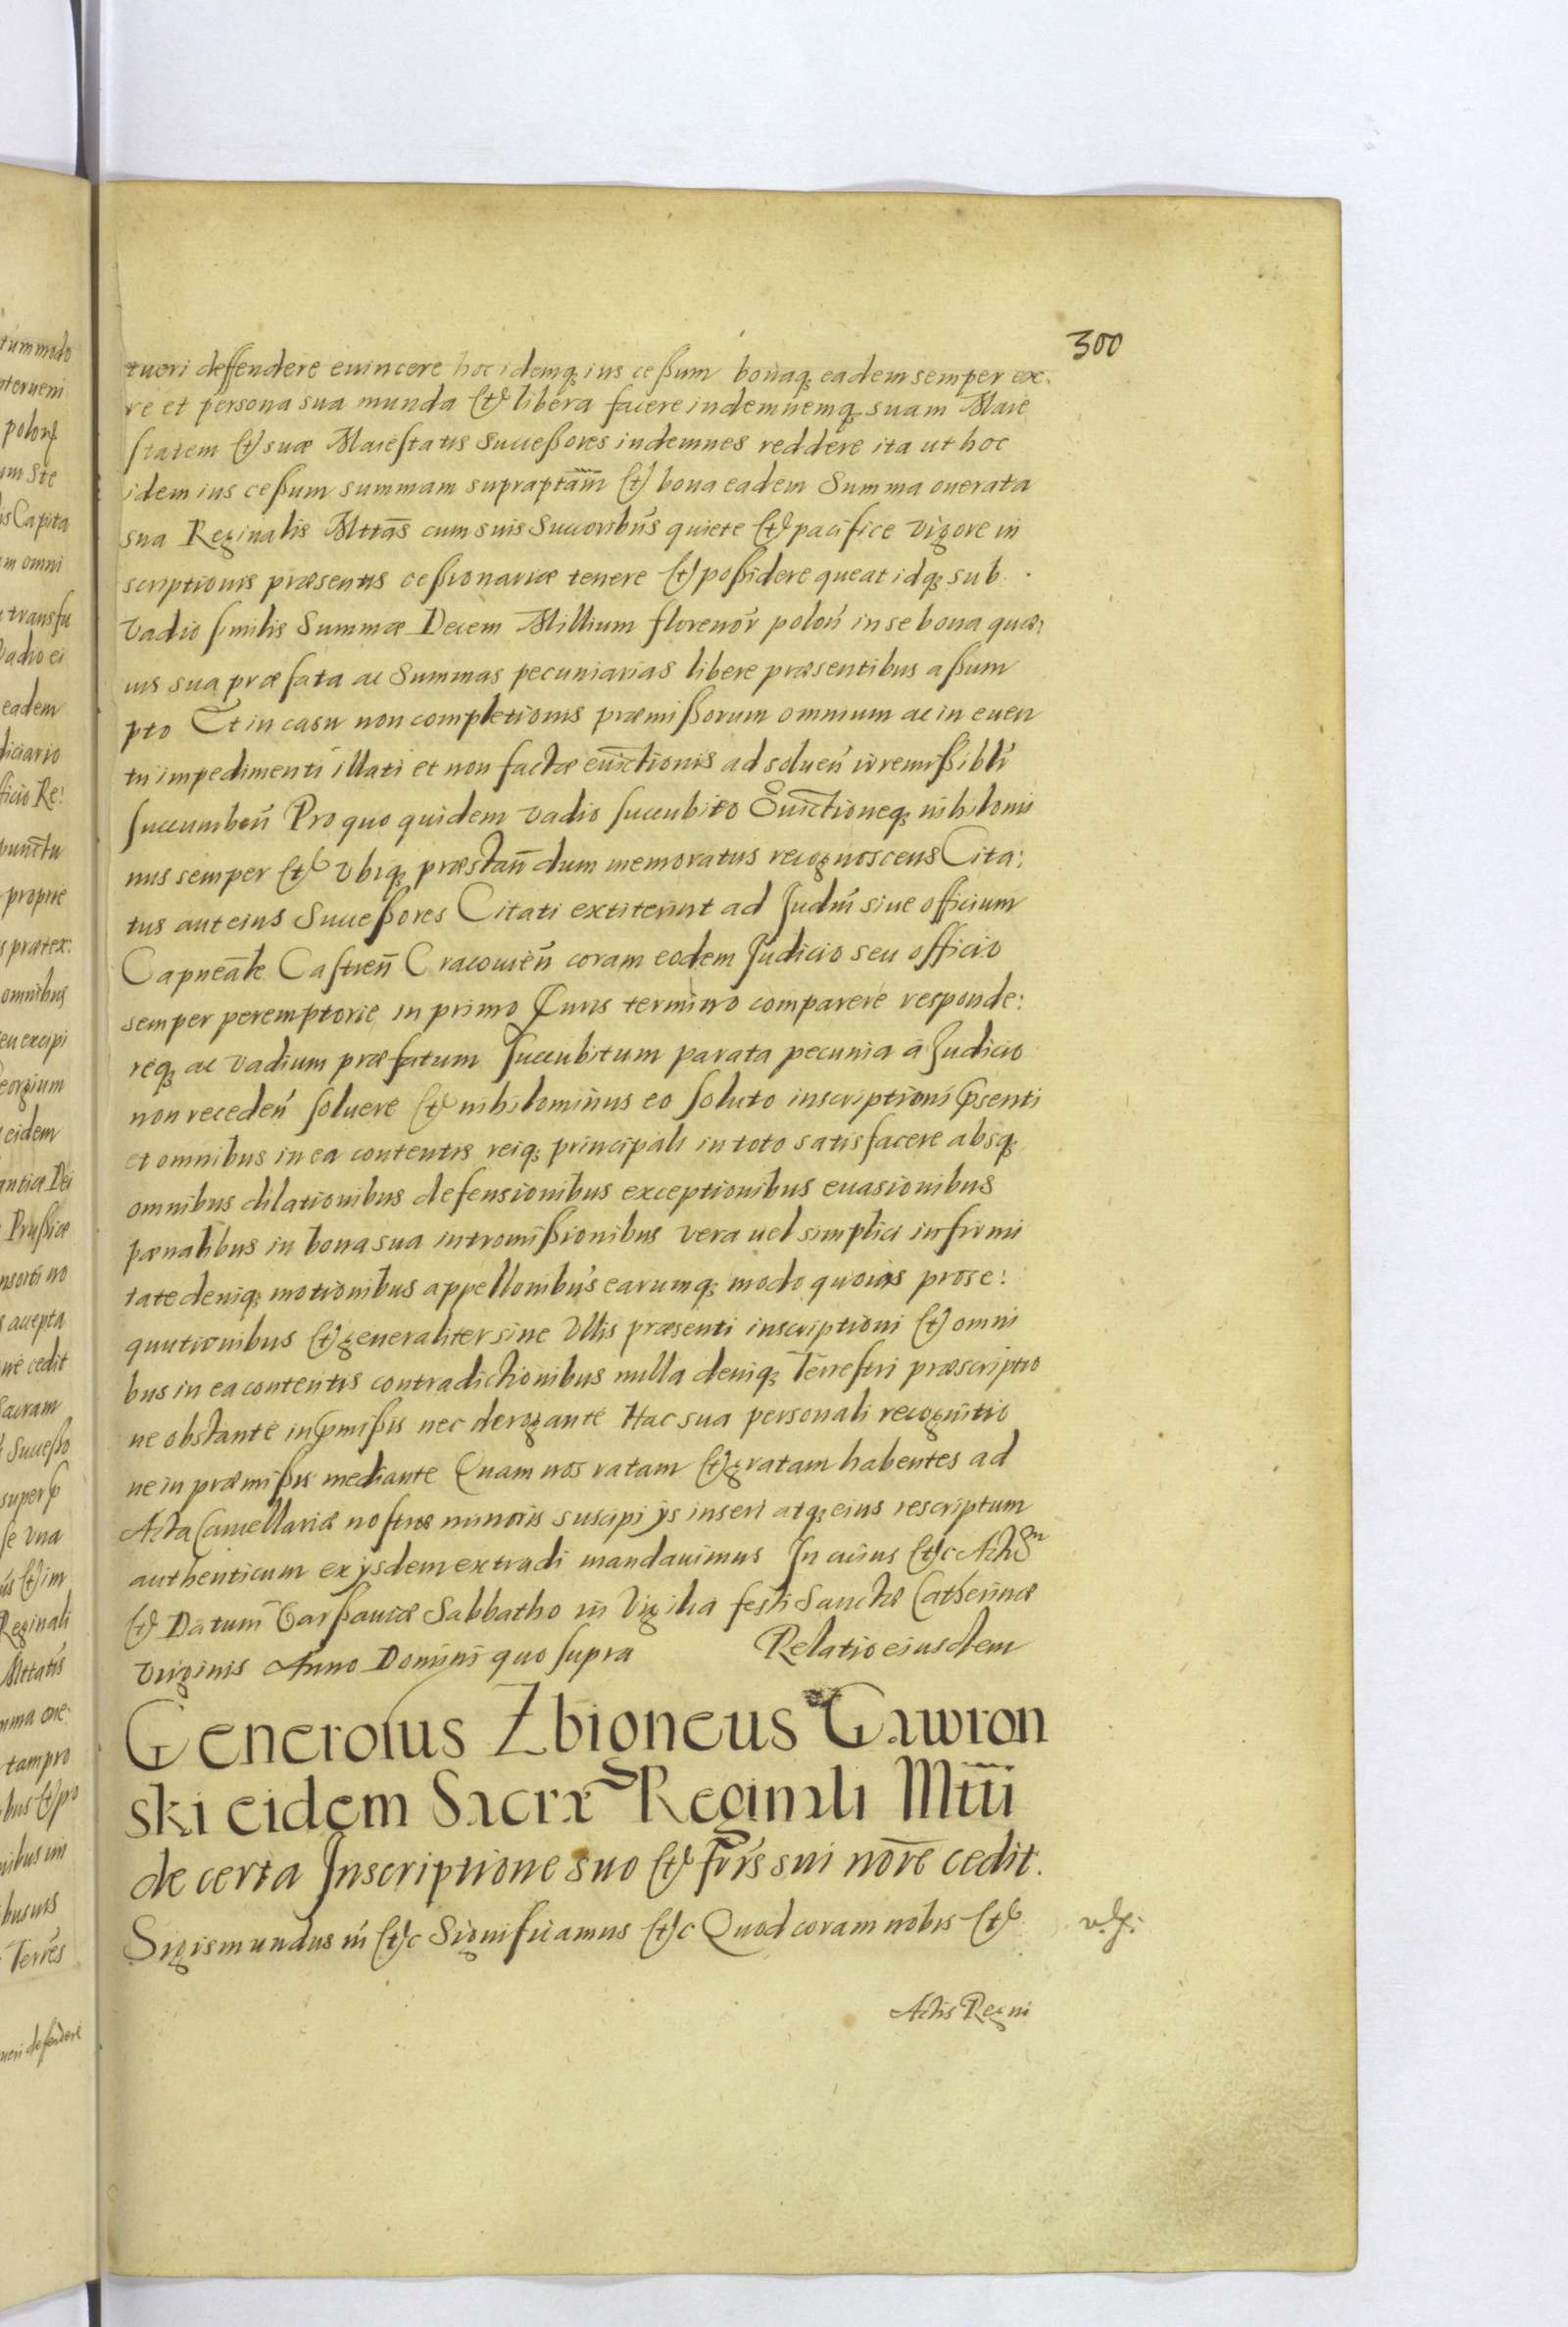 300
tueri deffendere euincere hoc idemq; ius ceßum bonaq; eadem semper ex:
re et persona sua munda et libera facere indemnemq; suam Maie
statem et suæ Maiestatis Succeßores indemnes reddere ita ut hoc
idem ius ceßum summam supraptam̃ et bona eadem Summa onerata
sua Reginalis Mttas̃ cum suis Succoribus quiete et pacifice vigore in
scriptionis præsentis ceßionariæ tenere et poßidere queat idq; sub
vadio similis Summæ Decem Millium florenor̃ polon̄ in se bona quæ:
uis sua præfata ac Summas pecuniarias libere præsentibus aßum
pto Et in casu non completionis præmißorum omnium ac in euen
tu impedimenti illati et non factæ euictionis ad soluen̄ irremißibłr
succumben̄ Pro quo quidem vadio succubito Euictioneq; nihilomi
nus semper et vbiq; præstan̄dum memoratus recognoscens Cita:
tus aut eius Succeßores Citati extiterint ad Judm̄ siue officium
Capneãle Castren̄ Cracouien̄ coram eodem Judicio seu officio
semper peremptorie in primo Juris termino comparere responde:
req; ac vadium præfatum succubitum parata pecunia a Judicio
non receden̄ soluere et nihilominus eo soluto inscriptioni p̃senti
et omnibus in ea contentis reiq; principali in toto satisfacere absq;
omnibus dilationibus defensionibus exceptionibus euasionibus
pænalibus in bona sua intromißionibus vera uel simplici infirmi
tate deniq; motionibus appellonibus earumq; modo quouis prose:
quutionibus et generaliter sine Vllis præsenti inscriptioni et omni
bus in ea contentis contradictionibus nulla deniq; Terrestri præscriptio
ne obstante in p̃mißis nec derogante Hac sua personali recognitio
ne in præmißis mediante Quam nos ratam et gratam habentes ad
Acta Cancellariæ nostræ minoris suscipi ijs inseri atq; eius rescriptum
authenticum ex ijsdem extradi mandauimus In cuius etc Actum
et Datum Varßauiæ Sabbatho in Vigilia festi Sanctæ Catherinæ
Virginis Anno Domini quo supra Relatio eiusdem
Generosus Zbigneus Gawron
ski eidem Sacræ Reginali Mtti
de certa Inscriptione suo et fr̃is sui nor̃e cedit.
Sigismundus m̃ etc Significamus etc Quod coram nobis et
Actis Regni